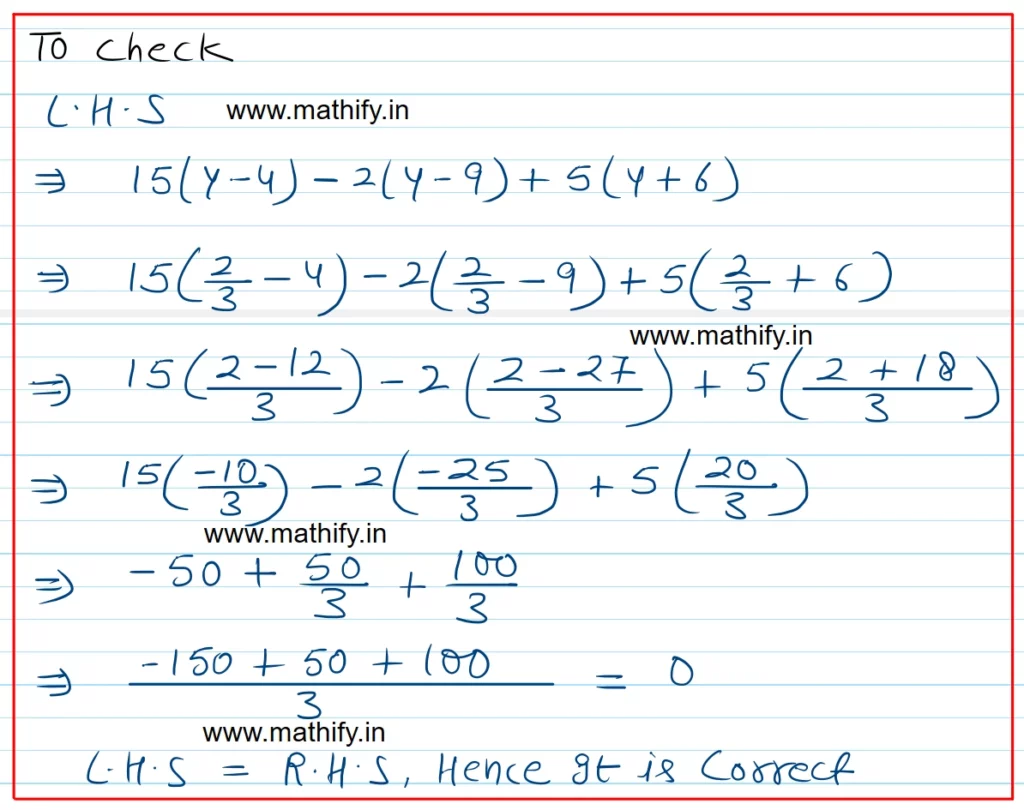 To check
L.H.S www.mathify.in
⇒ 15(y-4) - 2(y-9) + 5(y+6)
⇒ 15(2/3 - 4) - 2(2/3 - 9) + 5(2/3 + 6)
www.mathify.in
⇒ 15((2-12)/3) - 2((2-27)/3) + 5((2+18)/3)
⇒ 15(-10/3) - 2(-25/3) + 5(20/3)
www.mathify.in
⇒ -50 + 50/3 + 100/3
⇒ (-150 + 50 + 100)/3 = 0
www.mathify.in
L.H.S = R.H.S, Hence It is Correct